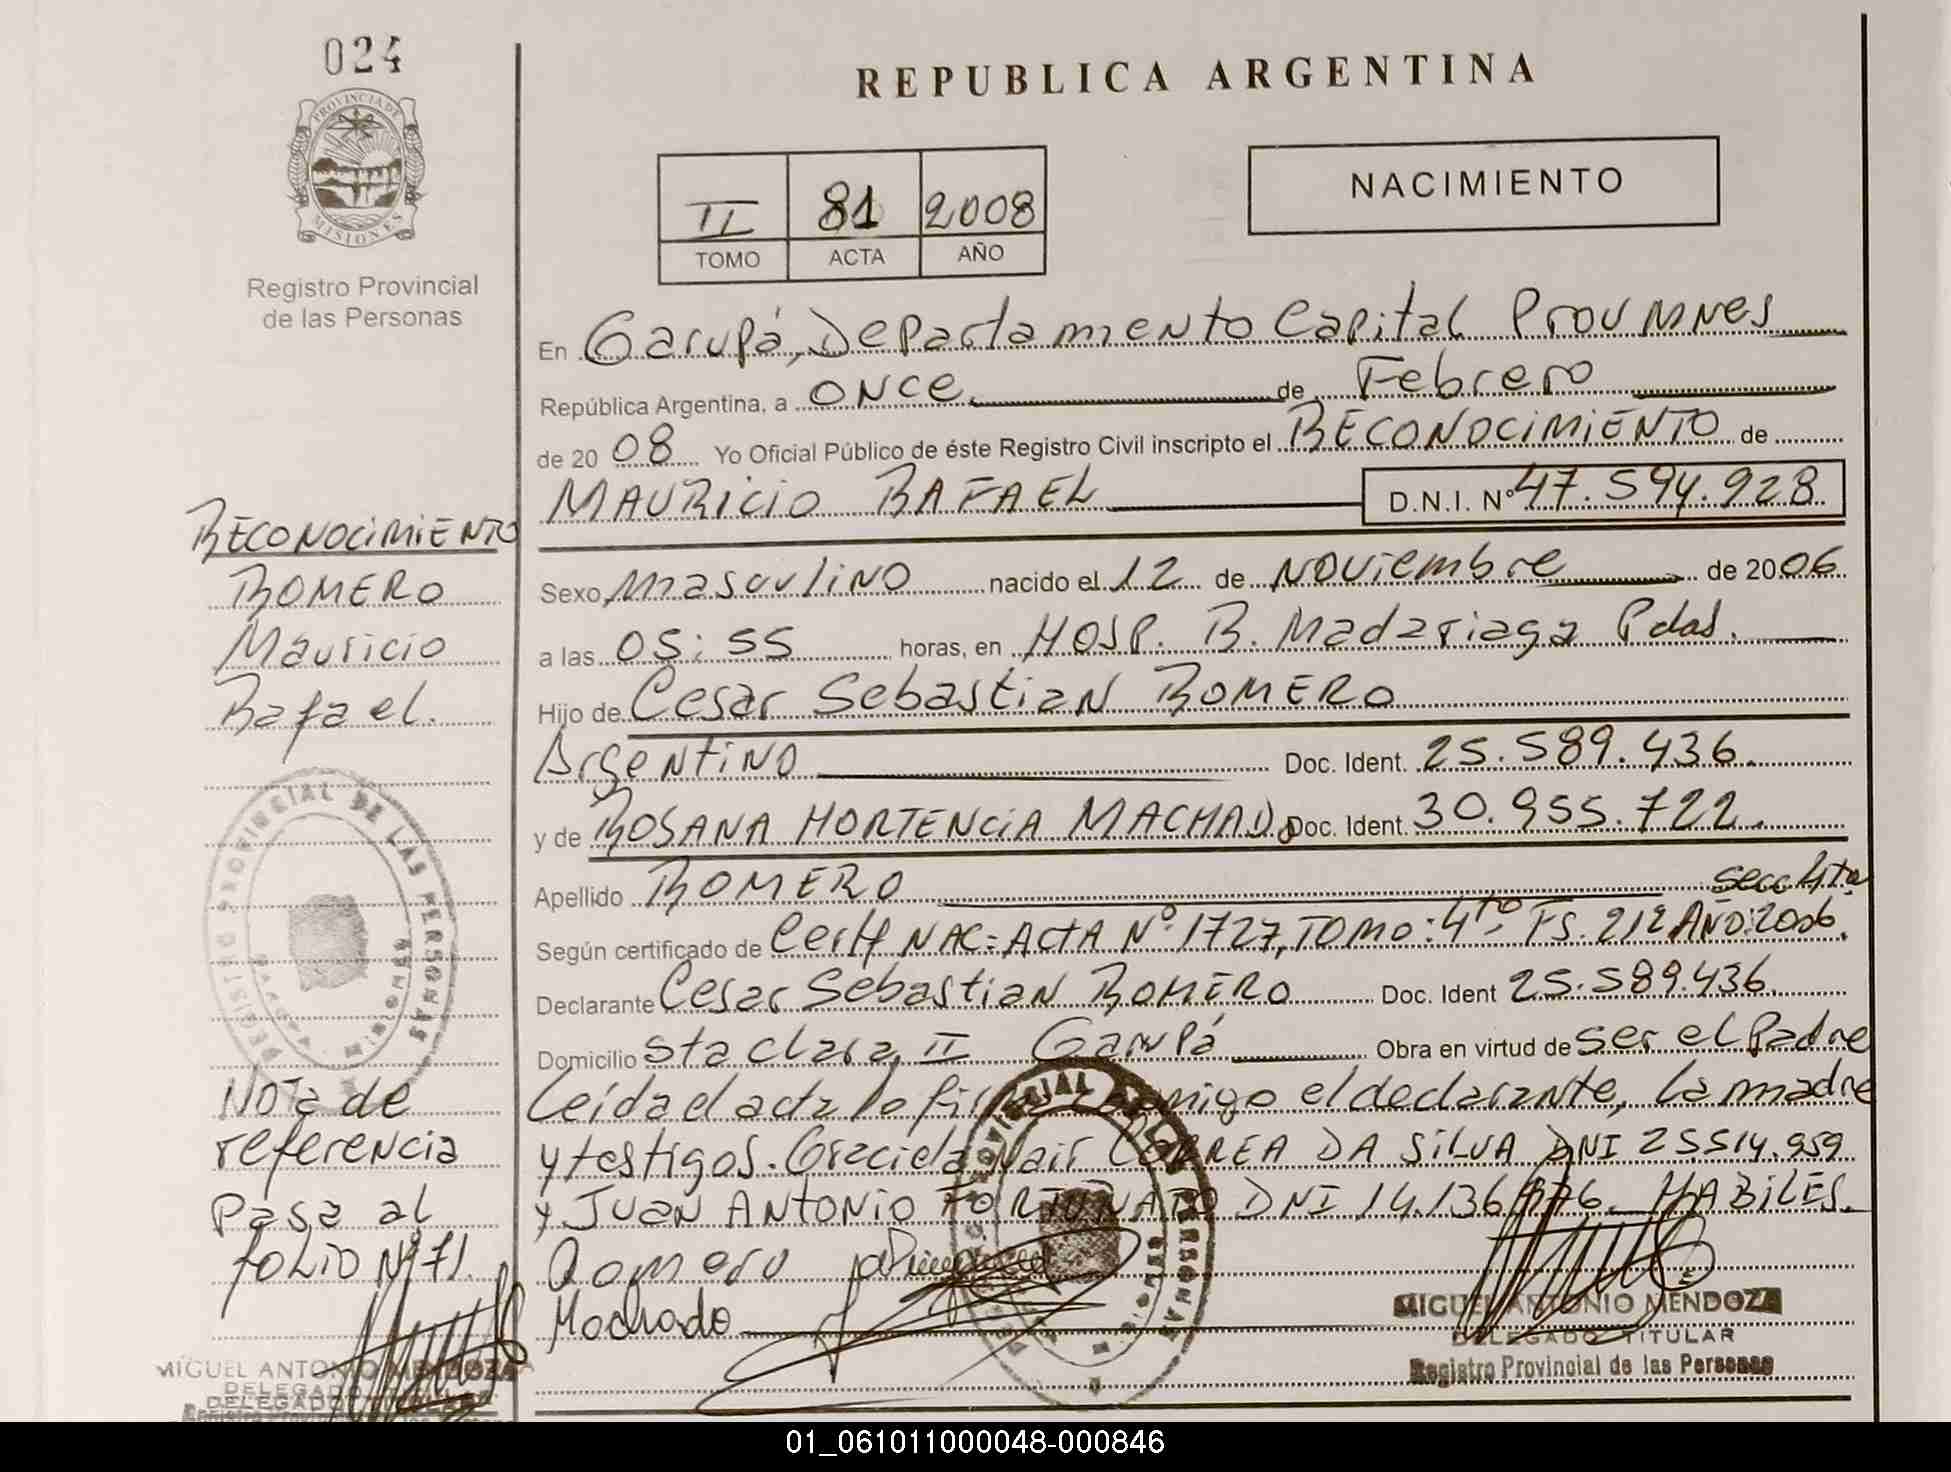 024
PROVINCIA DE
MISIONES
Registro Provincial
de las Personas
REPUBLICA ARGENTINA
II 81 2008
TOMO ACTA AÑO
NACIMIENTO
En Garupá, Departamento Capital Prov Mnes
República Argentina, a once de Febrero
de 2008 Yo Oficial Público de éste Registro Civil inscripto el RECONOCIMIENTO de
MAURICIO RAFAEL D.N.I. Nº 47.594.928
Sexo masculino nacido el 12 de Noviembre de 2006
a las 05:55 horas, en HOSP. R. Madariaga Pdas.
Hijo de Cesar Sebastian ROMERO
Argentino Doc. Ident. 25.589.436.
y de ROSANA HORTENCIA MACHADO Doc. Ident. 30.955.722.
Apellido ROMERO secc 4ta
Según certificado de Certf NAC: ACTA Nº 1727, TOMO: 4to, FS. 212 AÑO: 2006.
Declarante Cesar Sebastian ROMERO Doc. Ident 25.589.436.
Domicilio Sta clara II Garupá Obra en virtud de ser el Padre
Leída el acta lo firma conmigo el declarante, la madre
y testigos. Graciela Nair CORREA DA SILVA DNI 25514.959
y JUAN ANTONIO FORTUNATO DNI 14.136 HABILES.
Romero
Machado
MIGUEL ANTONIO MENDOZA
DELEGADO TITULAR
Registro Provincial de las Personas
RECONOCIMIENTO
ROMERO
Mauricio
Rafael.
REGISTRO PROVINCIAL DE LAS PERSONAS
Nota de
referencia
Pasa al
folio Nº 71.
MIGUEL ANTONIO MENDOZA
DELEGADO
01_061011000048-000846